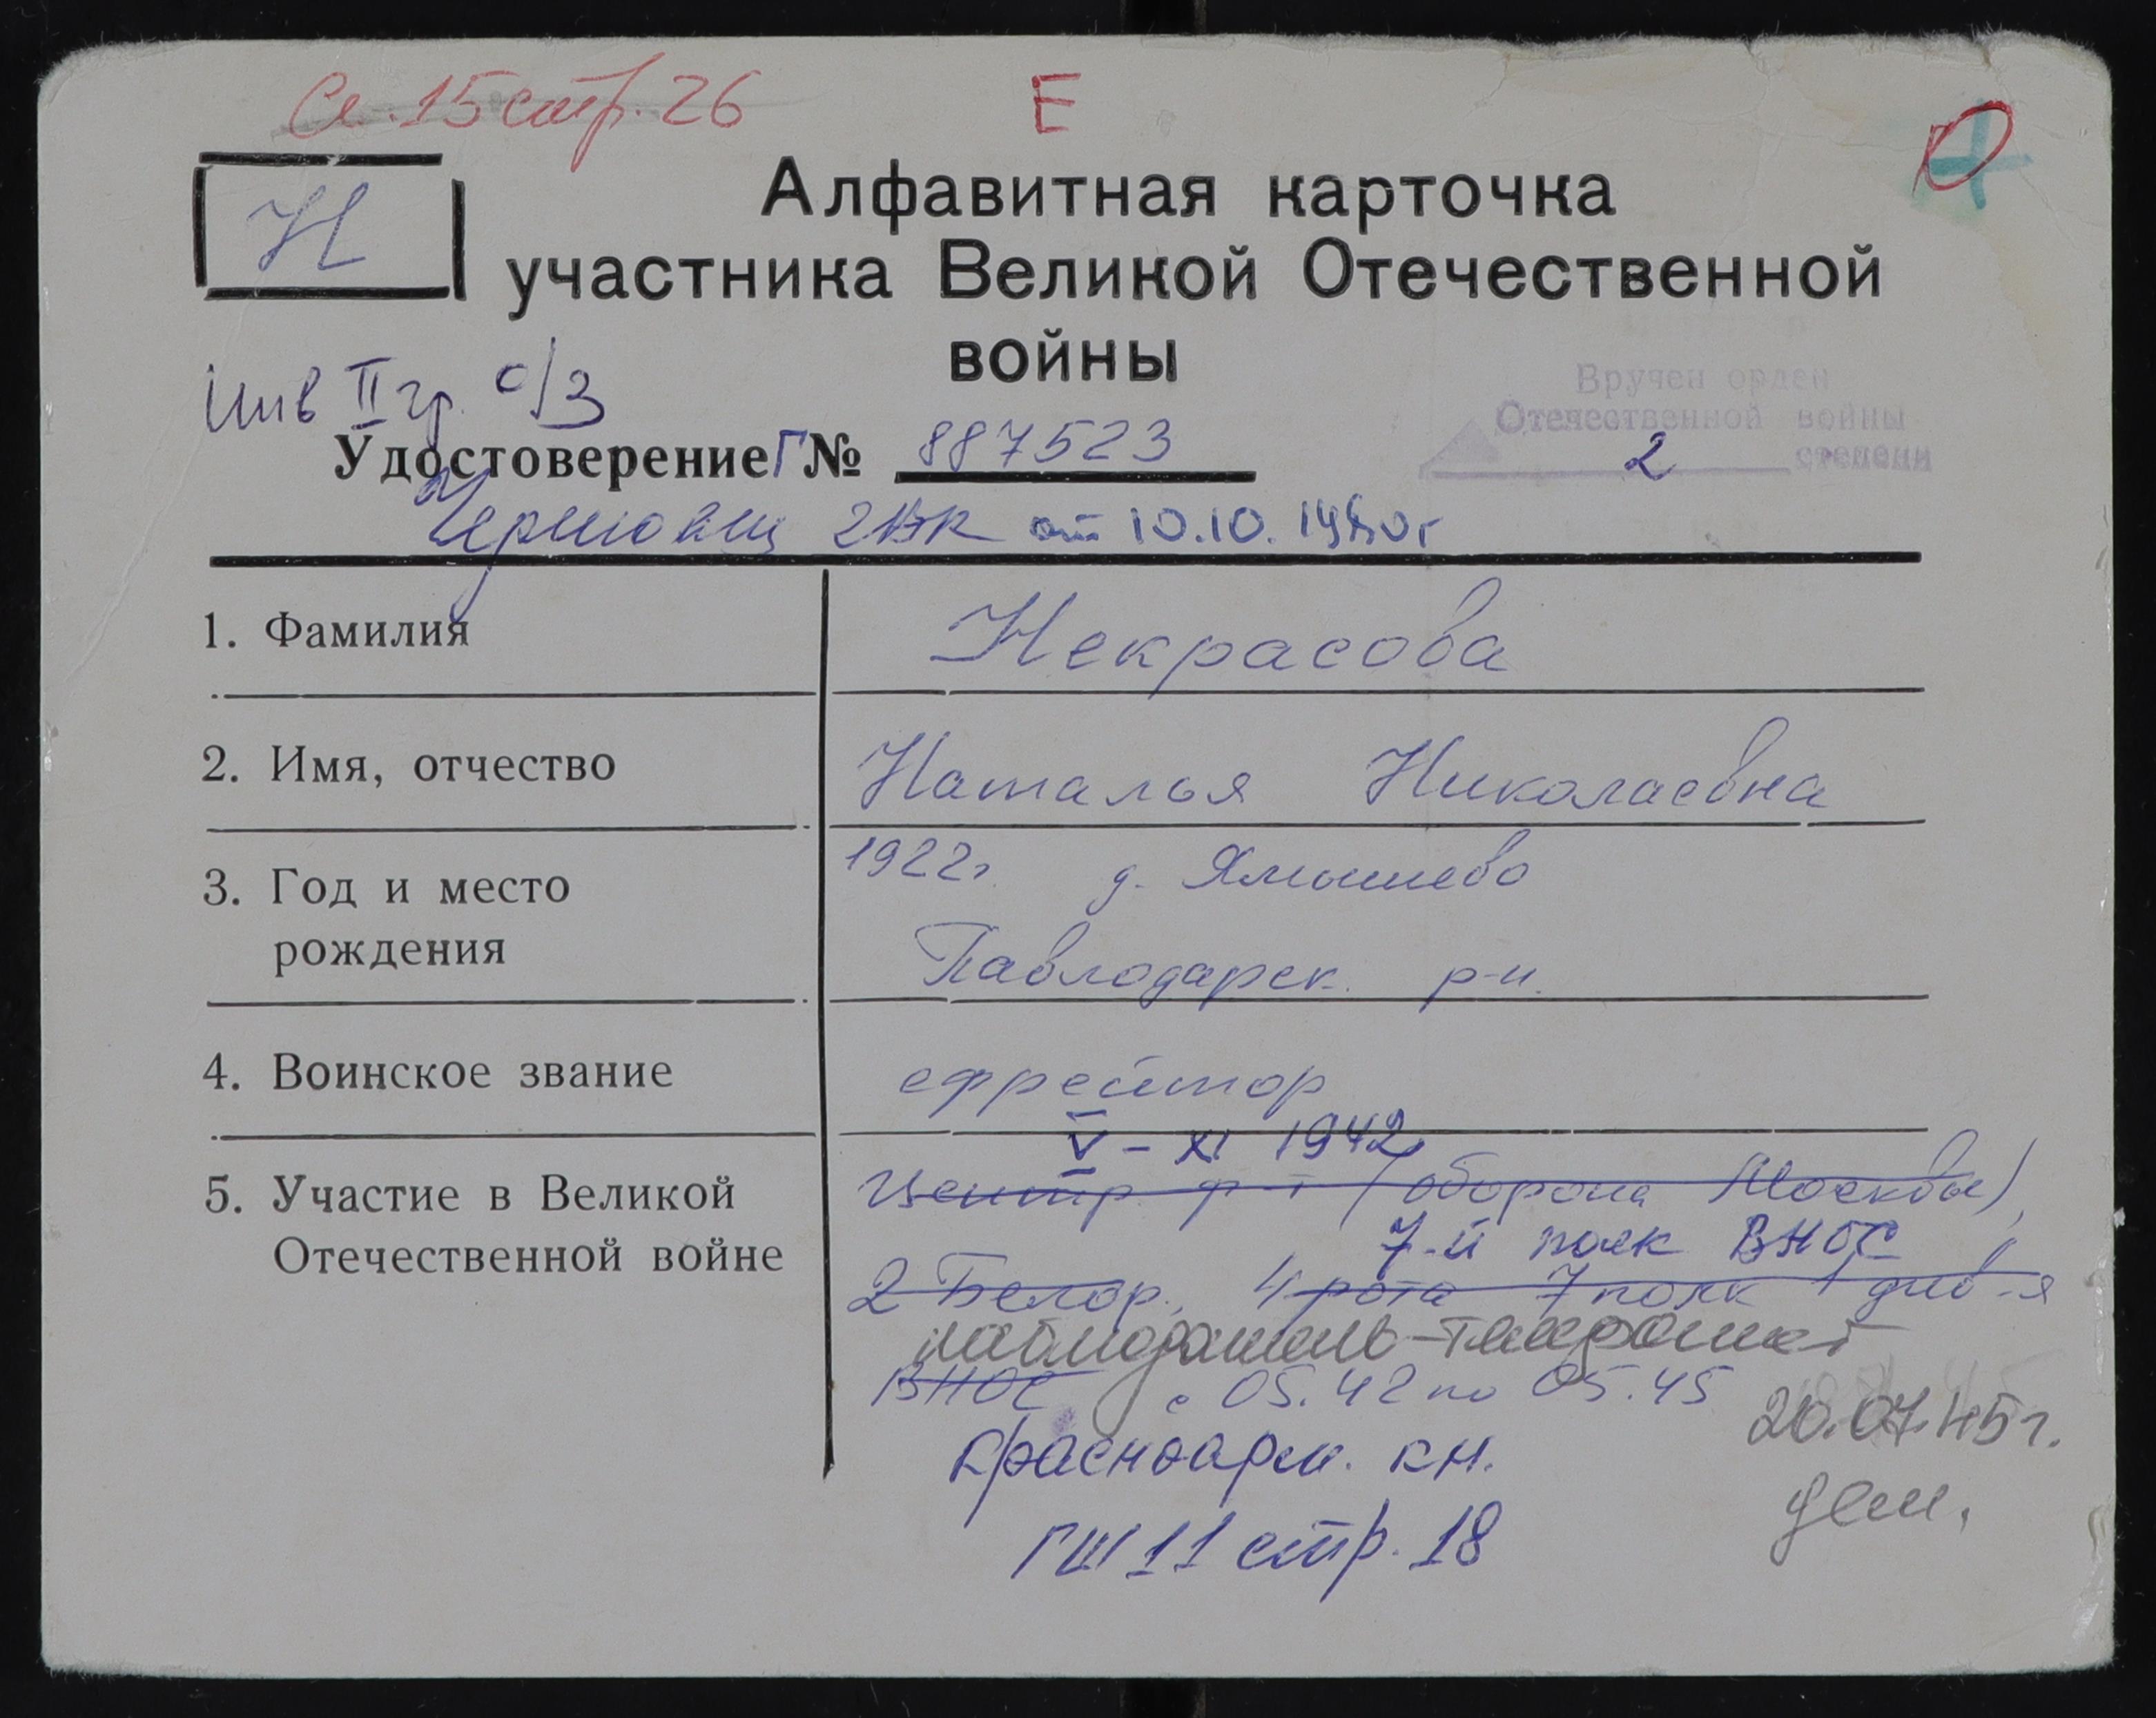 Сл. 15 стр. 26
Е
Н
Алфавитная карточка
участника Великой Отечественной
войны
Инв II гр. о/з
Вручен орден
Отечественной войны
2 степени
Удостоверение Г № 887523
от 10.10.1980г
1. Фамилия
Некрасова
2. Имя, отчество
Наталья Николаевна
3. Год и место
рождения
1922г. д. Ямышево
Павлодарск. р-н.
4. Воинское звание
ефрейтор
5. Участие в Великой
Отечественной войне
V - XI 1942
Центр. ф-т (оборона Москвы),
7-й полк ВНОС
2 Белор., 4 рота 7 полк 1 див-я
наблюдатель-телефонист
ВНОС с 05.42 по 05.45
20.07.45г.
дем.
Красноарм. кн.
ГШ 11 стр. 18